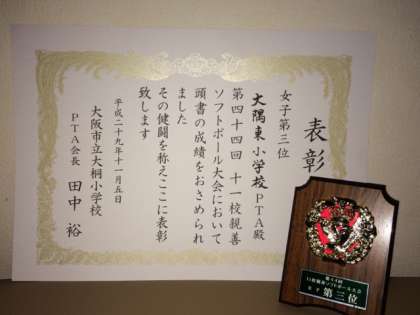 表彰
女子第三位
大隅東小学校PTA殿
第四十四回 十一校親善
ソフトボール大会において
頭書の成績をおさめられ
ました
その健闘を称えここに表彰
致します
平成二十九年十一月五日
大阪市立大桐小学校
PTA会長 田中 裕
第44回
11校親善ソフトボール大会
女子 第三位